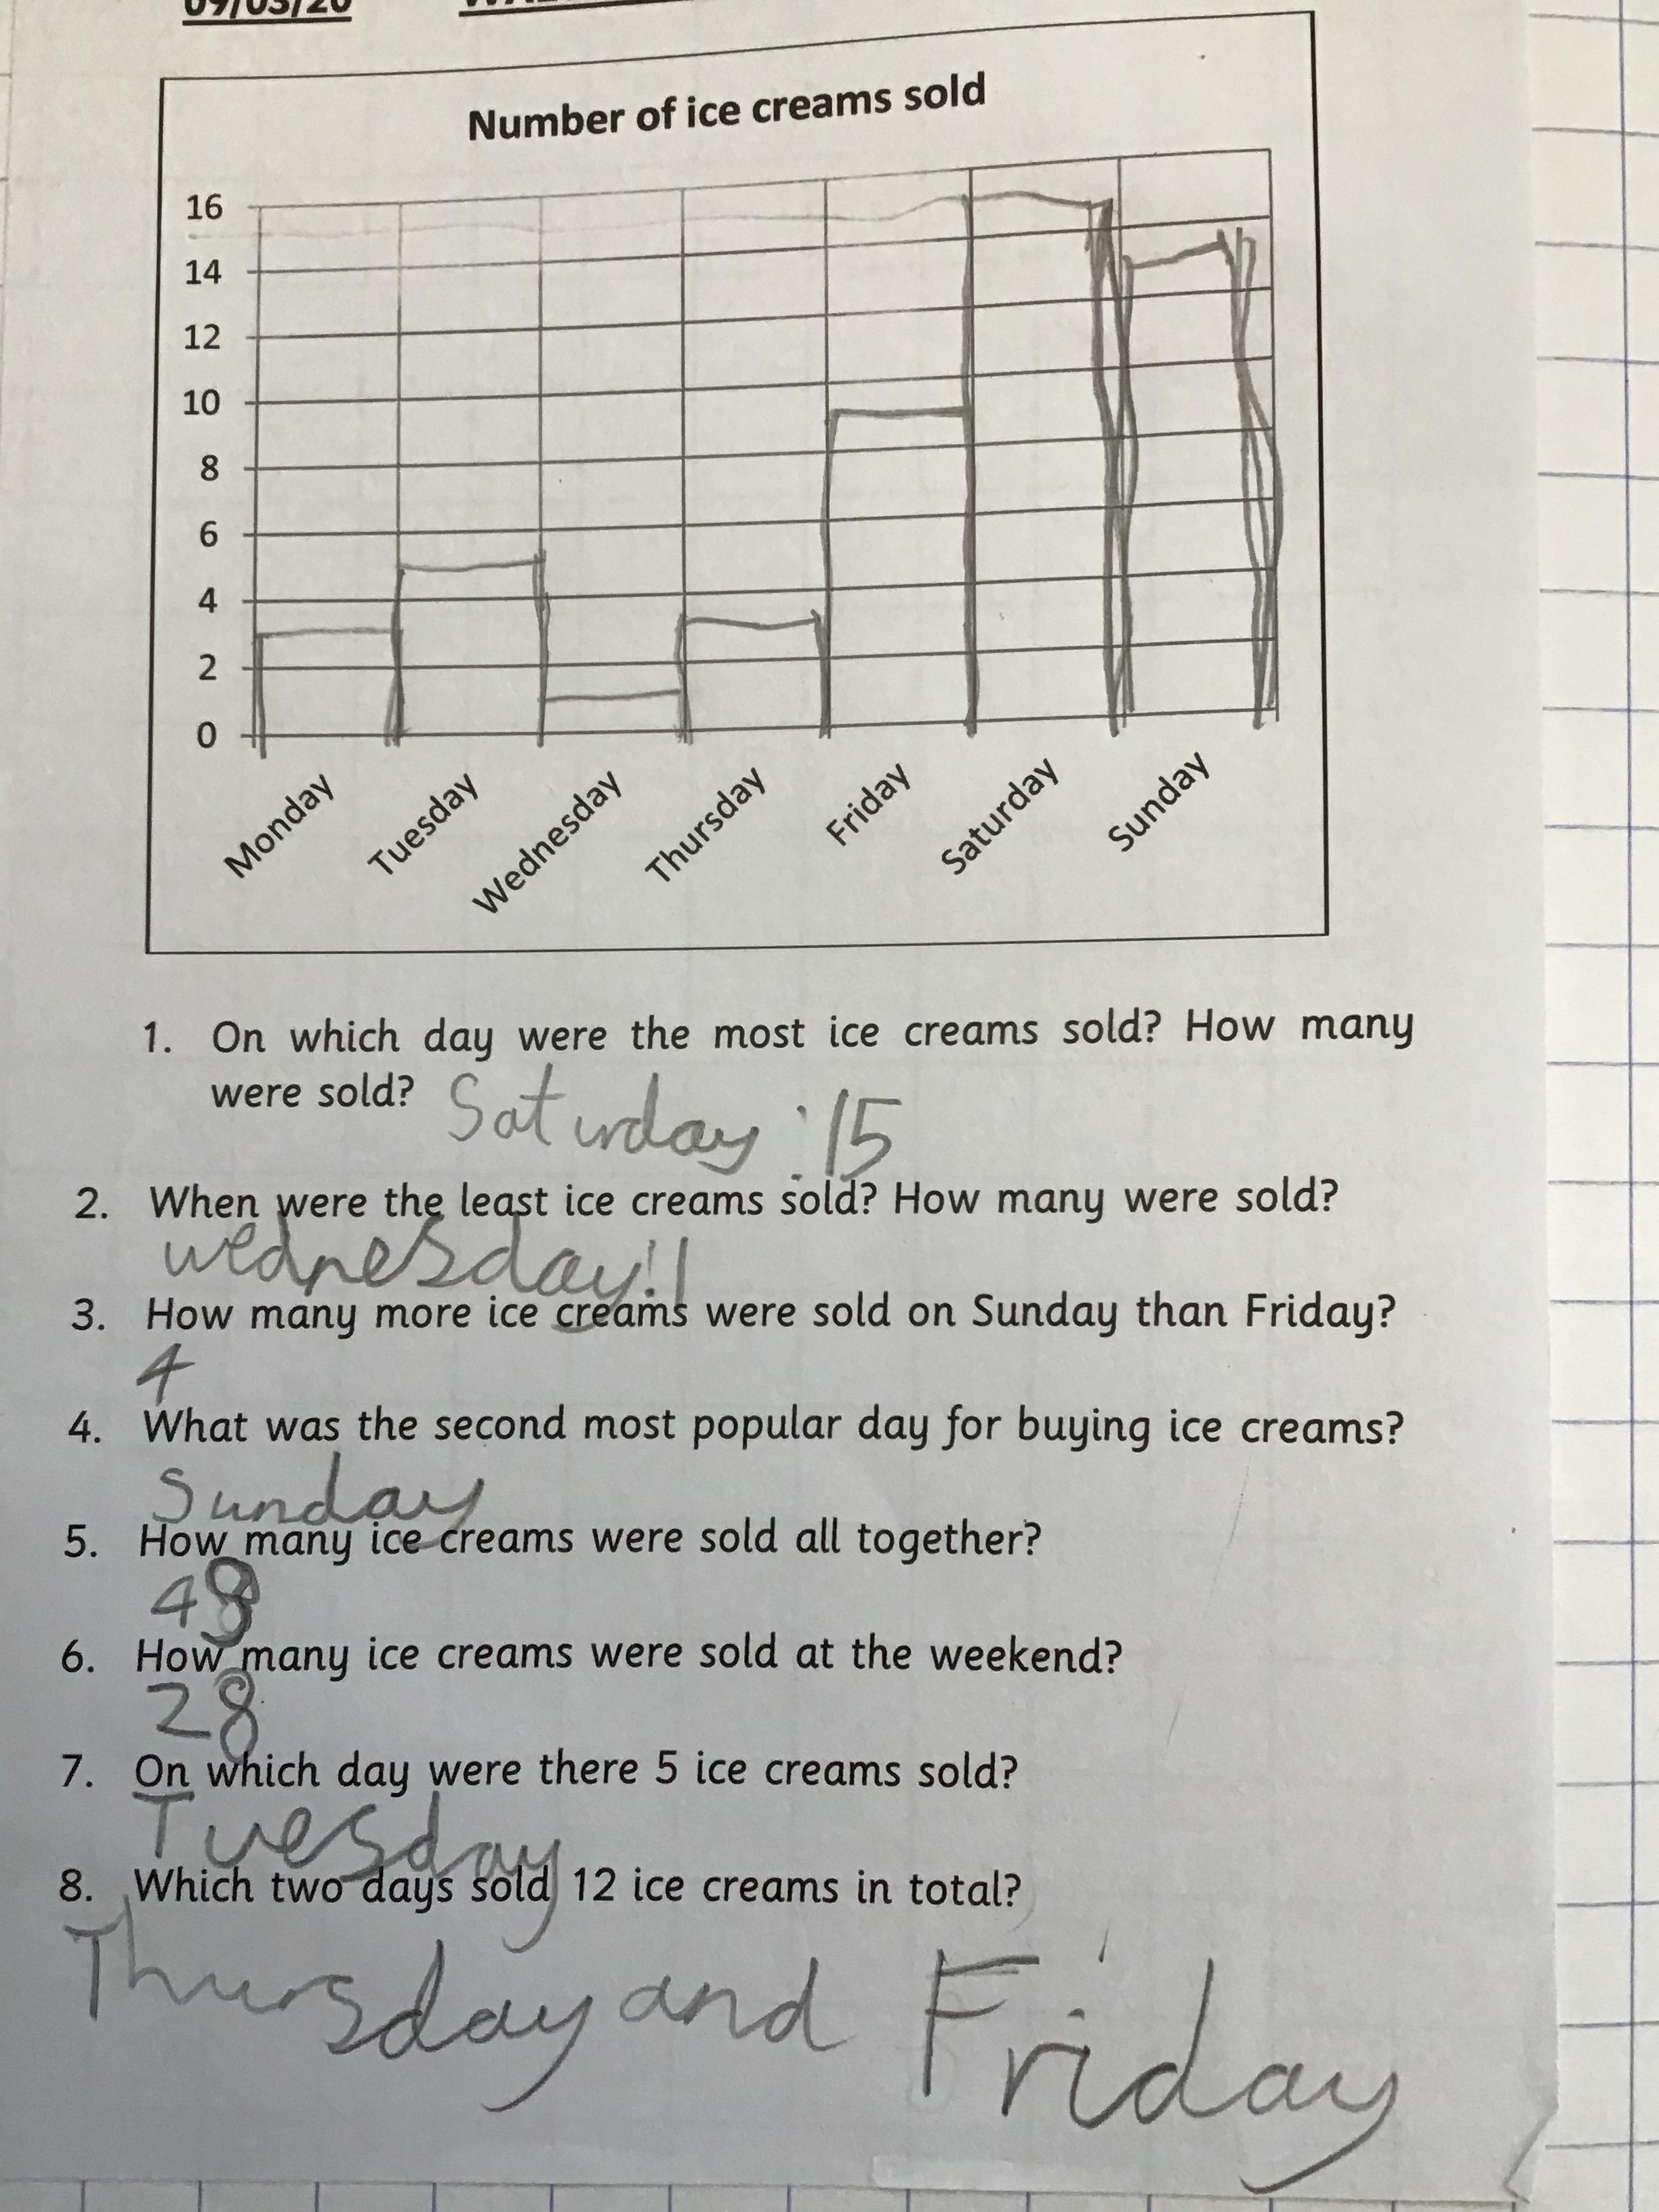 09/03/20
Number of ice creams sold
16
14
12
10
8
6
4
2
0
Monday
Tuesday
Wednesday
Thursday
Friday
Saturday
Sunday
1. On which day were the most ice creams sold? How many
were sold? Saturday :15
2. When were the least ice creams sold? How many were sold?
wednesday:1
3. How many more ice creams were sold on Sunday than Friday?
4
4. What was the second most popular day for buying ice creams?
Sunday
5. How many ice creams were sold all together?
48
6. How many ice creams were sold at the weekend?
28
7. On which day were there 5 ice creams sold?
Tuesday
8. Which two days sold 12 ice creams in total?
Thursday and Friday